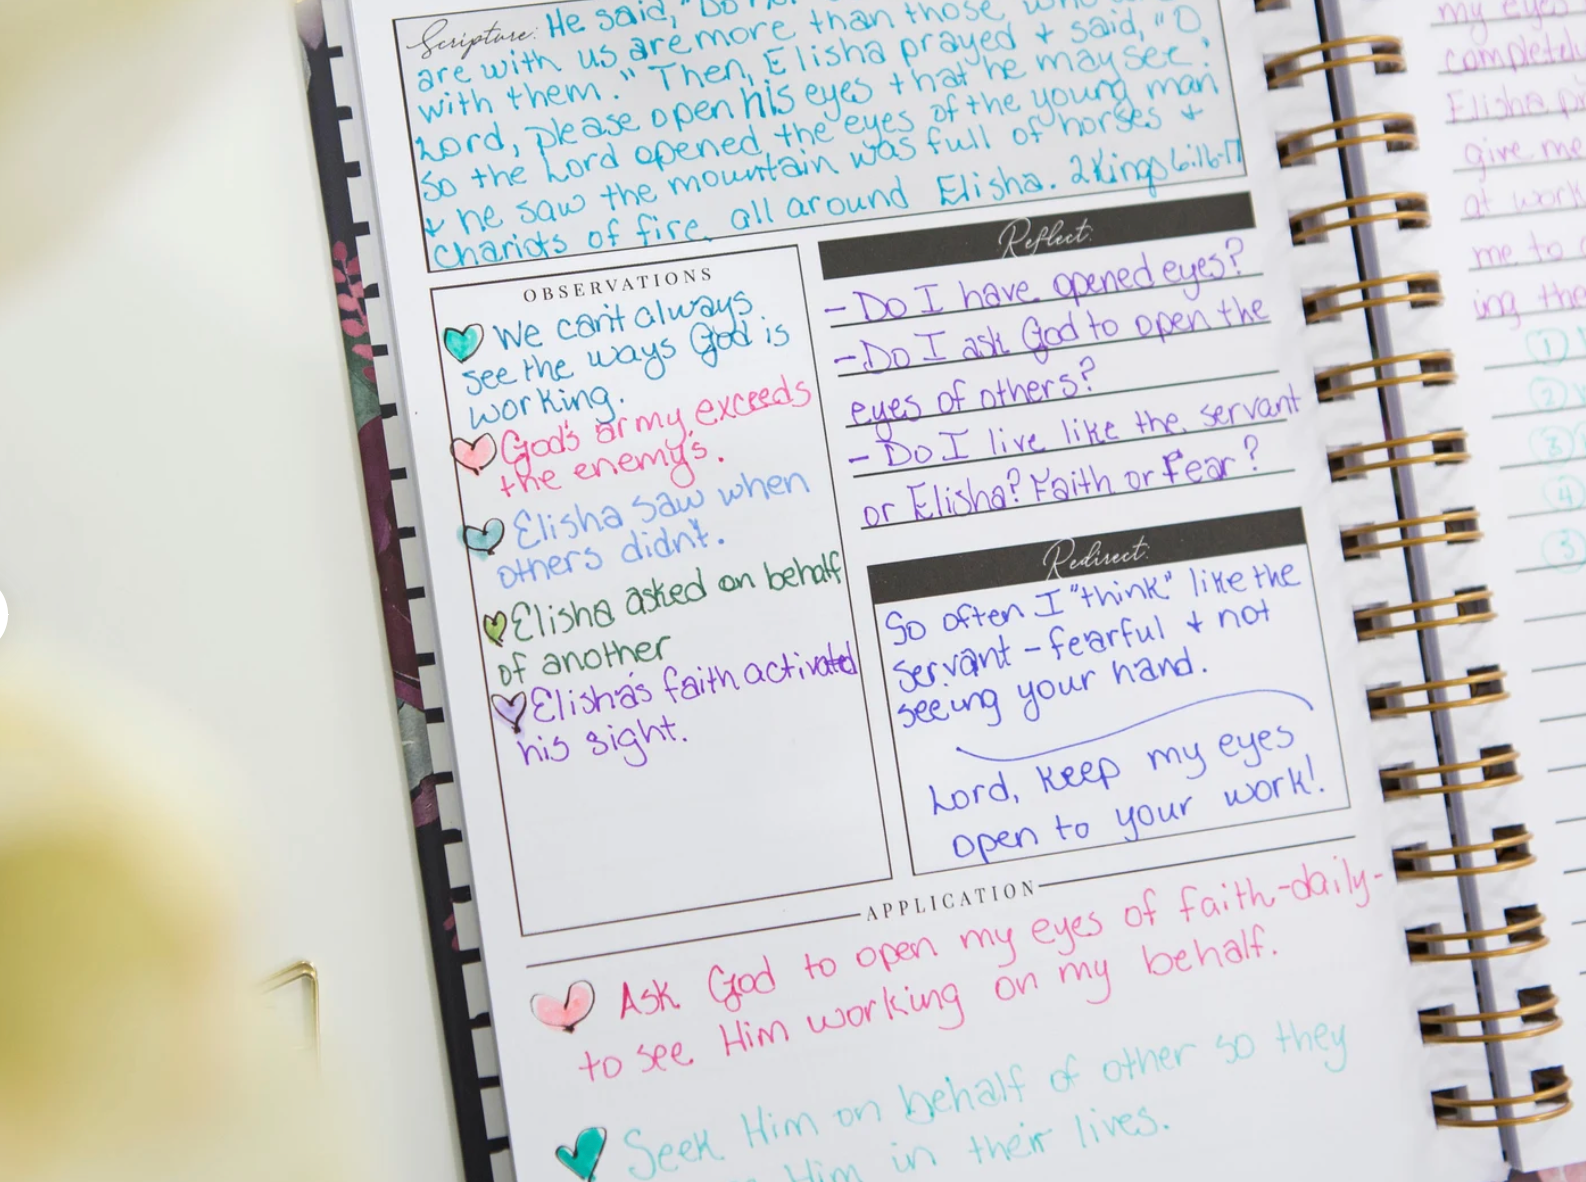 Scripture: He said, "Do
are with us are more than those who
with them." Then, Elisha prayed + said, "O
Lord, please open his eyes that he may see."
So the Lord opened the eyes of the young man
+ he saw the mountain was full of horses +
chariots of fire all around Elisha. 2 Kings 6:16-17
OBSERVATIONS
We can't always
see the ways God is
working.
God's army exceeds
the enemy's.
Elisha saw when
others didn't.
Elisha asked on behalf
of another
Elisha's faith activated
his sight.
Reflect:
- Do I have opened eyes?
- Do I ask God to open the
eyes of others?
- Do I live like the servant
or Elisha? Faith or Fear?
Redirect:
So often I "think" like the
servant - fearful + not
seeing your hand.
Lord, keep my eyes
open to your work!
APPLICATION
Ask God to open my eyes of faith-daily-
to see Him working on my behalf.
Seek Him on behalf of other so they
Him in their lives.
my eyes
completely
Elisha
give me
at work
me to
ing the
1
2
3
4
5